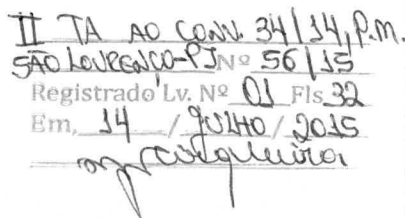 II TA AO CONV. 34/14, P.M.
SÃO LOURENÇO-PI Nº 56/15
Registrado Lv. Nº 01 Fls 32
Em, 14 / JULHO / 2015